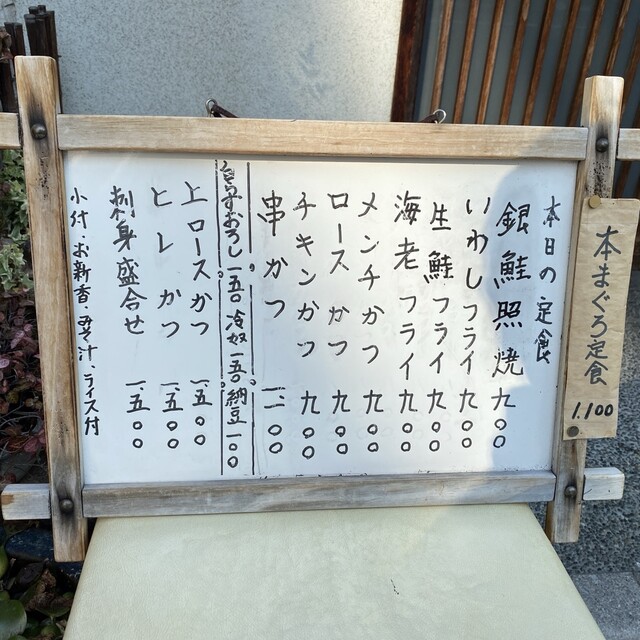 本まぐろ定食
1.100
本日の定食
銀鮭照焼 九〇〇
いわしフライ 九〇〇
生鮭フライ 九〇〇
海老フライ 九〇〇
メンチかつ 九〇〇
ロースかつ 九〇〇
チキンかつ 九〇〇
串かつ 一二〇〇
しらすおろし一五〇。冷奴一五〇。納豆一〇〇
上ロースかつ 一.五〇〇
ヒレかつ 一.五〇〇
刺身盛合せ 一.五〇〇
小付、お新香、みそ汁、ライス付